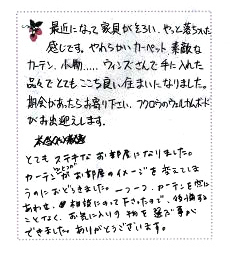 最近になって家具がそろい、やっと落ちついた
感じです。やわらかいカーペット、素敵な
カーテン、小物……ウィンズさんで手に入れた
品々でとてもここち良い住まいになりました。
機会があったらお寄り下さい。フクロウのウェルカムボード
がお出迎えします。
とてもステキなお部屋になりました。
カーテンがお部屋のイメージを変えてしま
うのにおどろきました。一つ一つ、カーテンを窓に
あわせ、相談にのって下さったので、後悔する
ことなく、お気に入りの物を選ぶ事が
できました。ありがとうございます。